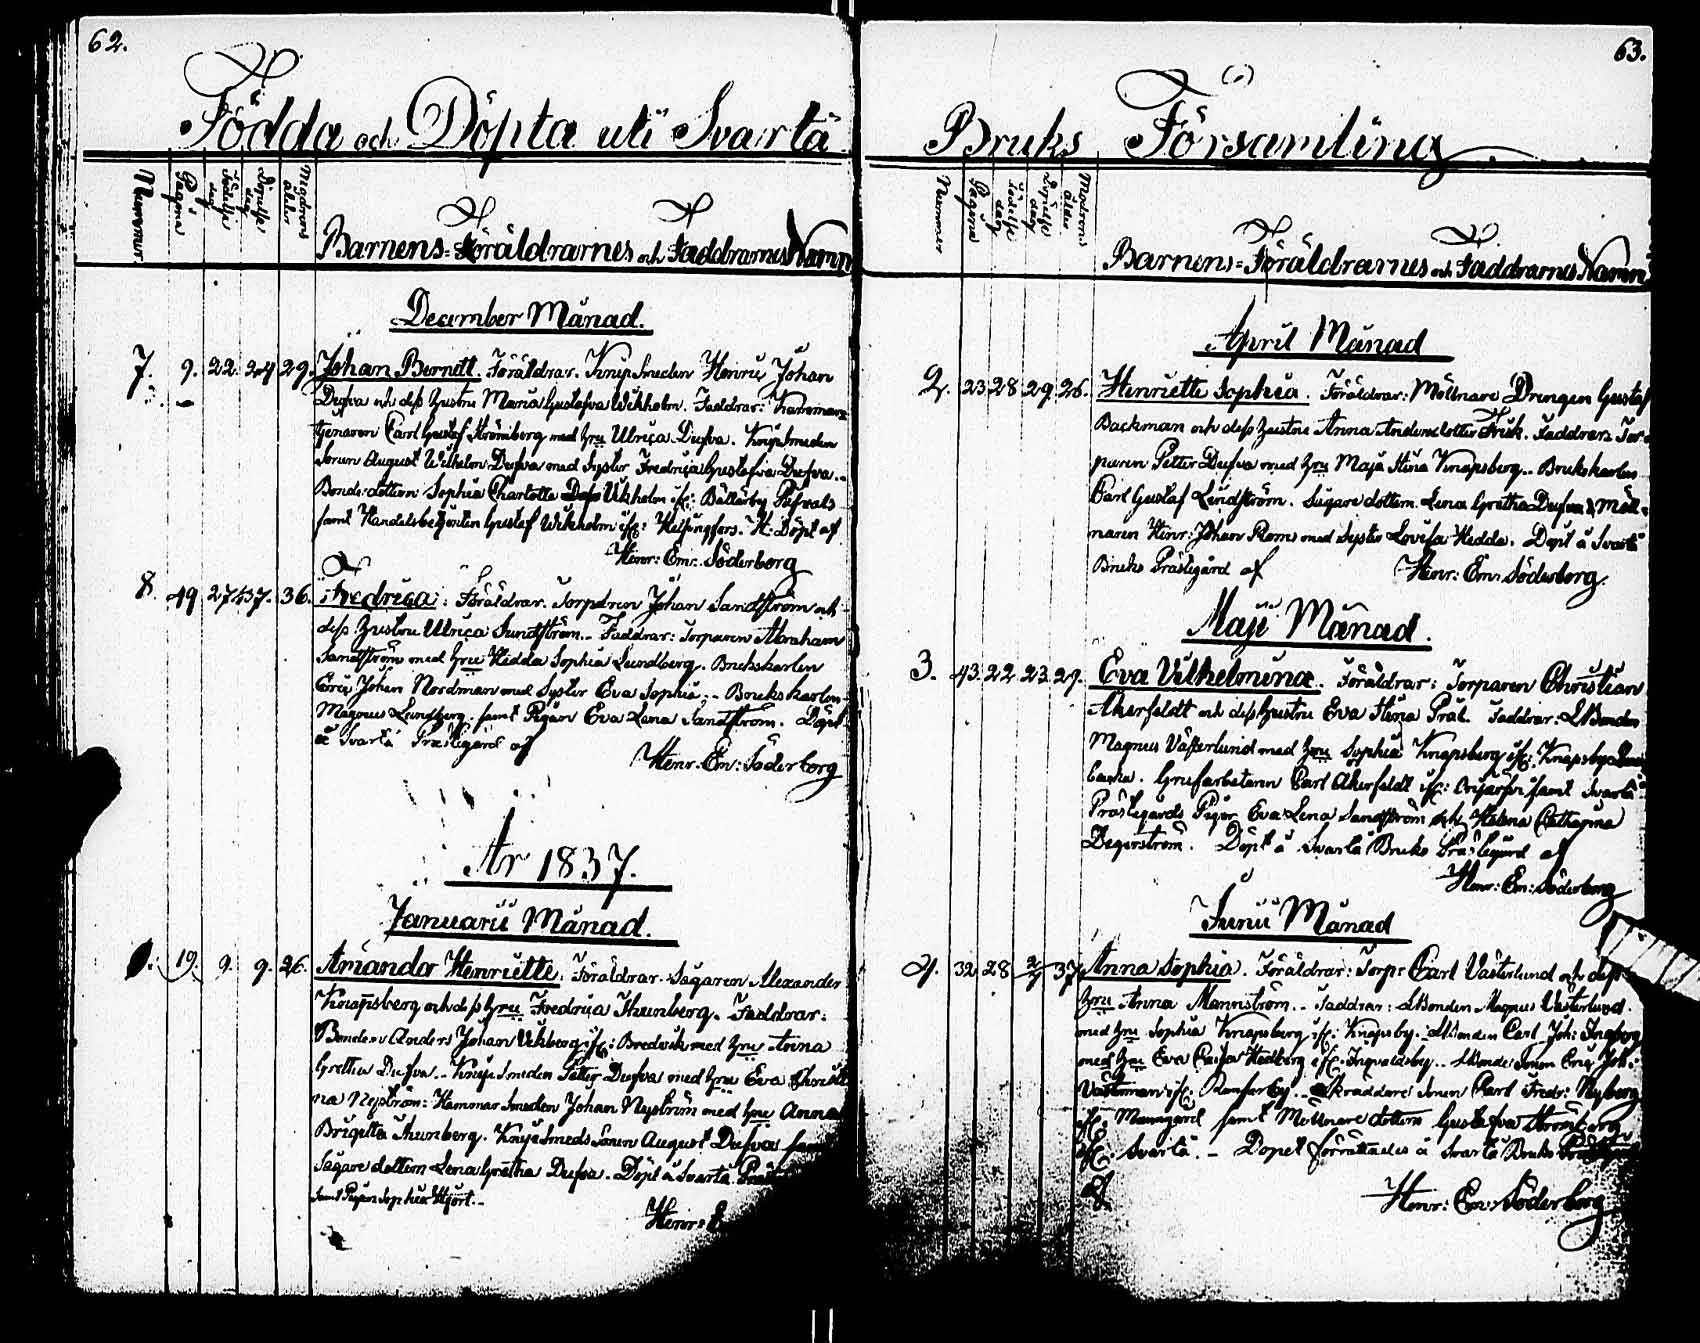 62.
Födda och Döpta uti Svartå
Nummer
Pagina
Födelse dag
Döpelse dag
Modrens ålder
Barnens= Föräldrarnes och Faddrarnes Namn
December Månad.
7. 9. 22. 24 29. Johan Berndt. Föräldrar. Knip Smeden Henric Johan
Dufva och dess hustru Maria Gustafva Wikholm. Faddrar:
Carl Gustaf Strömberg med hru Ulrica Dufva. Knip Smeden
Sonen August Wilhelm Dufva med Syster Fredrica Gustafva Dufva.
Bonde dottern Sophia Charlotta Wikholm
samt Handelsbetjenten Gustaf Wikholm ifr: Helsingfors. Döpt af
Henr: Em: Söderborg
8. 49 27 36. Fredrica: Föräldrar. Torparen Johan Sandström och
dess hustru Ulrica Sundström. Faddrar: Torparen Abraham
Sandström med hru Hedda Sophia Lundberg. Brukskarlen
Eric Johan Nordman med Syster Eva Sophia. Brukskarlen
Magnus Lundberg. samt Pigan Eva Lena Sandström. Döpt
å Svartå Prästegård af
Henr. Em: Söderborg
År 1837.
Januarii Månad.
1. 19. 9. 9. 26. Amanda Henriette. Föräldrar. Sågaren Alexander
Knapsberg och dess hru Fredrica Thunberg. Faddrar:
Bonden Anders Johan Wikberg ifr: Bredvik med hru Anna
Gretha Dufva. Knipsmeden Petter Dufva med hru Eva Christi
na Nyström: Hammar Smeden Johan Nyström med hru Anna
Brigitta Thunberg. Knip Smeds Sonen August Dufva samt
Sågare dottern Lena Gretha Dufva. Döpt å Svartå
samt Pigan Sophia Hjort.
Henr:
63.
Bruks Församling
Nummer
Pagina
Födelse dag
Döpelse dag
Modrens ålder
Barnens= Föräldrarnes och Faddrarnes Namn
April Månad
2. 23 28 29. 26. Henriette Sophia. Föräldrar: Möllnare Drengen Gustaf
Backman och dess hustru Anna Andersdotter Frisk. Faddrar: Tor
paren Petter Dufva med hru Maja Stina Knapsberg. Brukskarlen
Carl Gustaf Lindström. Sågare dottern Lena Gretha Dufva & Möll
naren Henr: Johan Roms med Syster Lovisa Hedda. Döpt å Svartå
Bruks Prästegård af Henr: Em: Söderborg.
Maji Månad.
3. 43. 22. 23. 29. Eva Vilhelmina. Föräldrar: Torparen Christian
Åkerfeldt och dess hustru Eva Stina Prät. Faddrar: Bonden
Magnus Västerlund med hru Sophia Knapsberg ifr: Knapsby
Grufarbetaren Carl Åkerfeldt ifr: Orijärfvi samt Svartå
Prästegårds Pigor Eva Lena Sandström och Helena Catharina
Degerström. Döpt å Svartå Bruks Prästegård af
Henr: Em: Söderborg
Junii Månad
4. 32 28 2/7 37 Anna Sophia. Föräldrar: Torp: Carl Västerlund och dess
hru Anna Mannström. Faddrar: Bonden Magnus Västerlund
med hru Sophia Knapsberg ifr: Knapsby. Bonden Carl Joh: Ingberg
med hru Eva Caisa Hedberg ifr: Ingvaldsby. Bonde Sonen Eric Joh:
Västerman ifr: Skräddare Sonen Carl Fredr: Nyberg
ifr: samt Möllnare dottern Gustafva Strömberg
ifr: Svartå. Dopet förrättades å Svartå Bruks
af Henr: Em: Söderborg